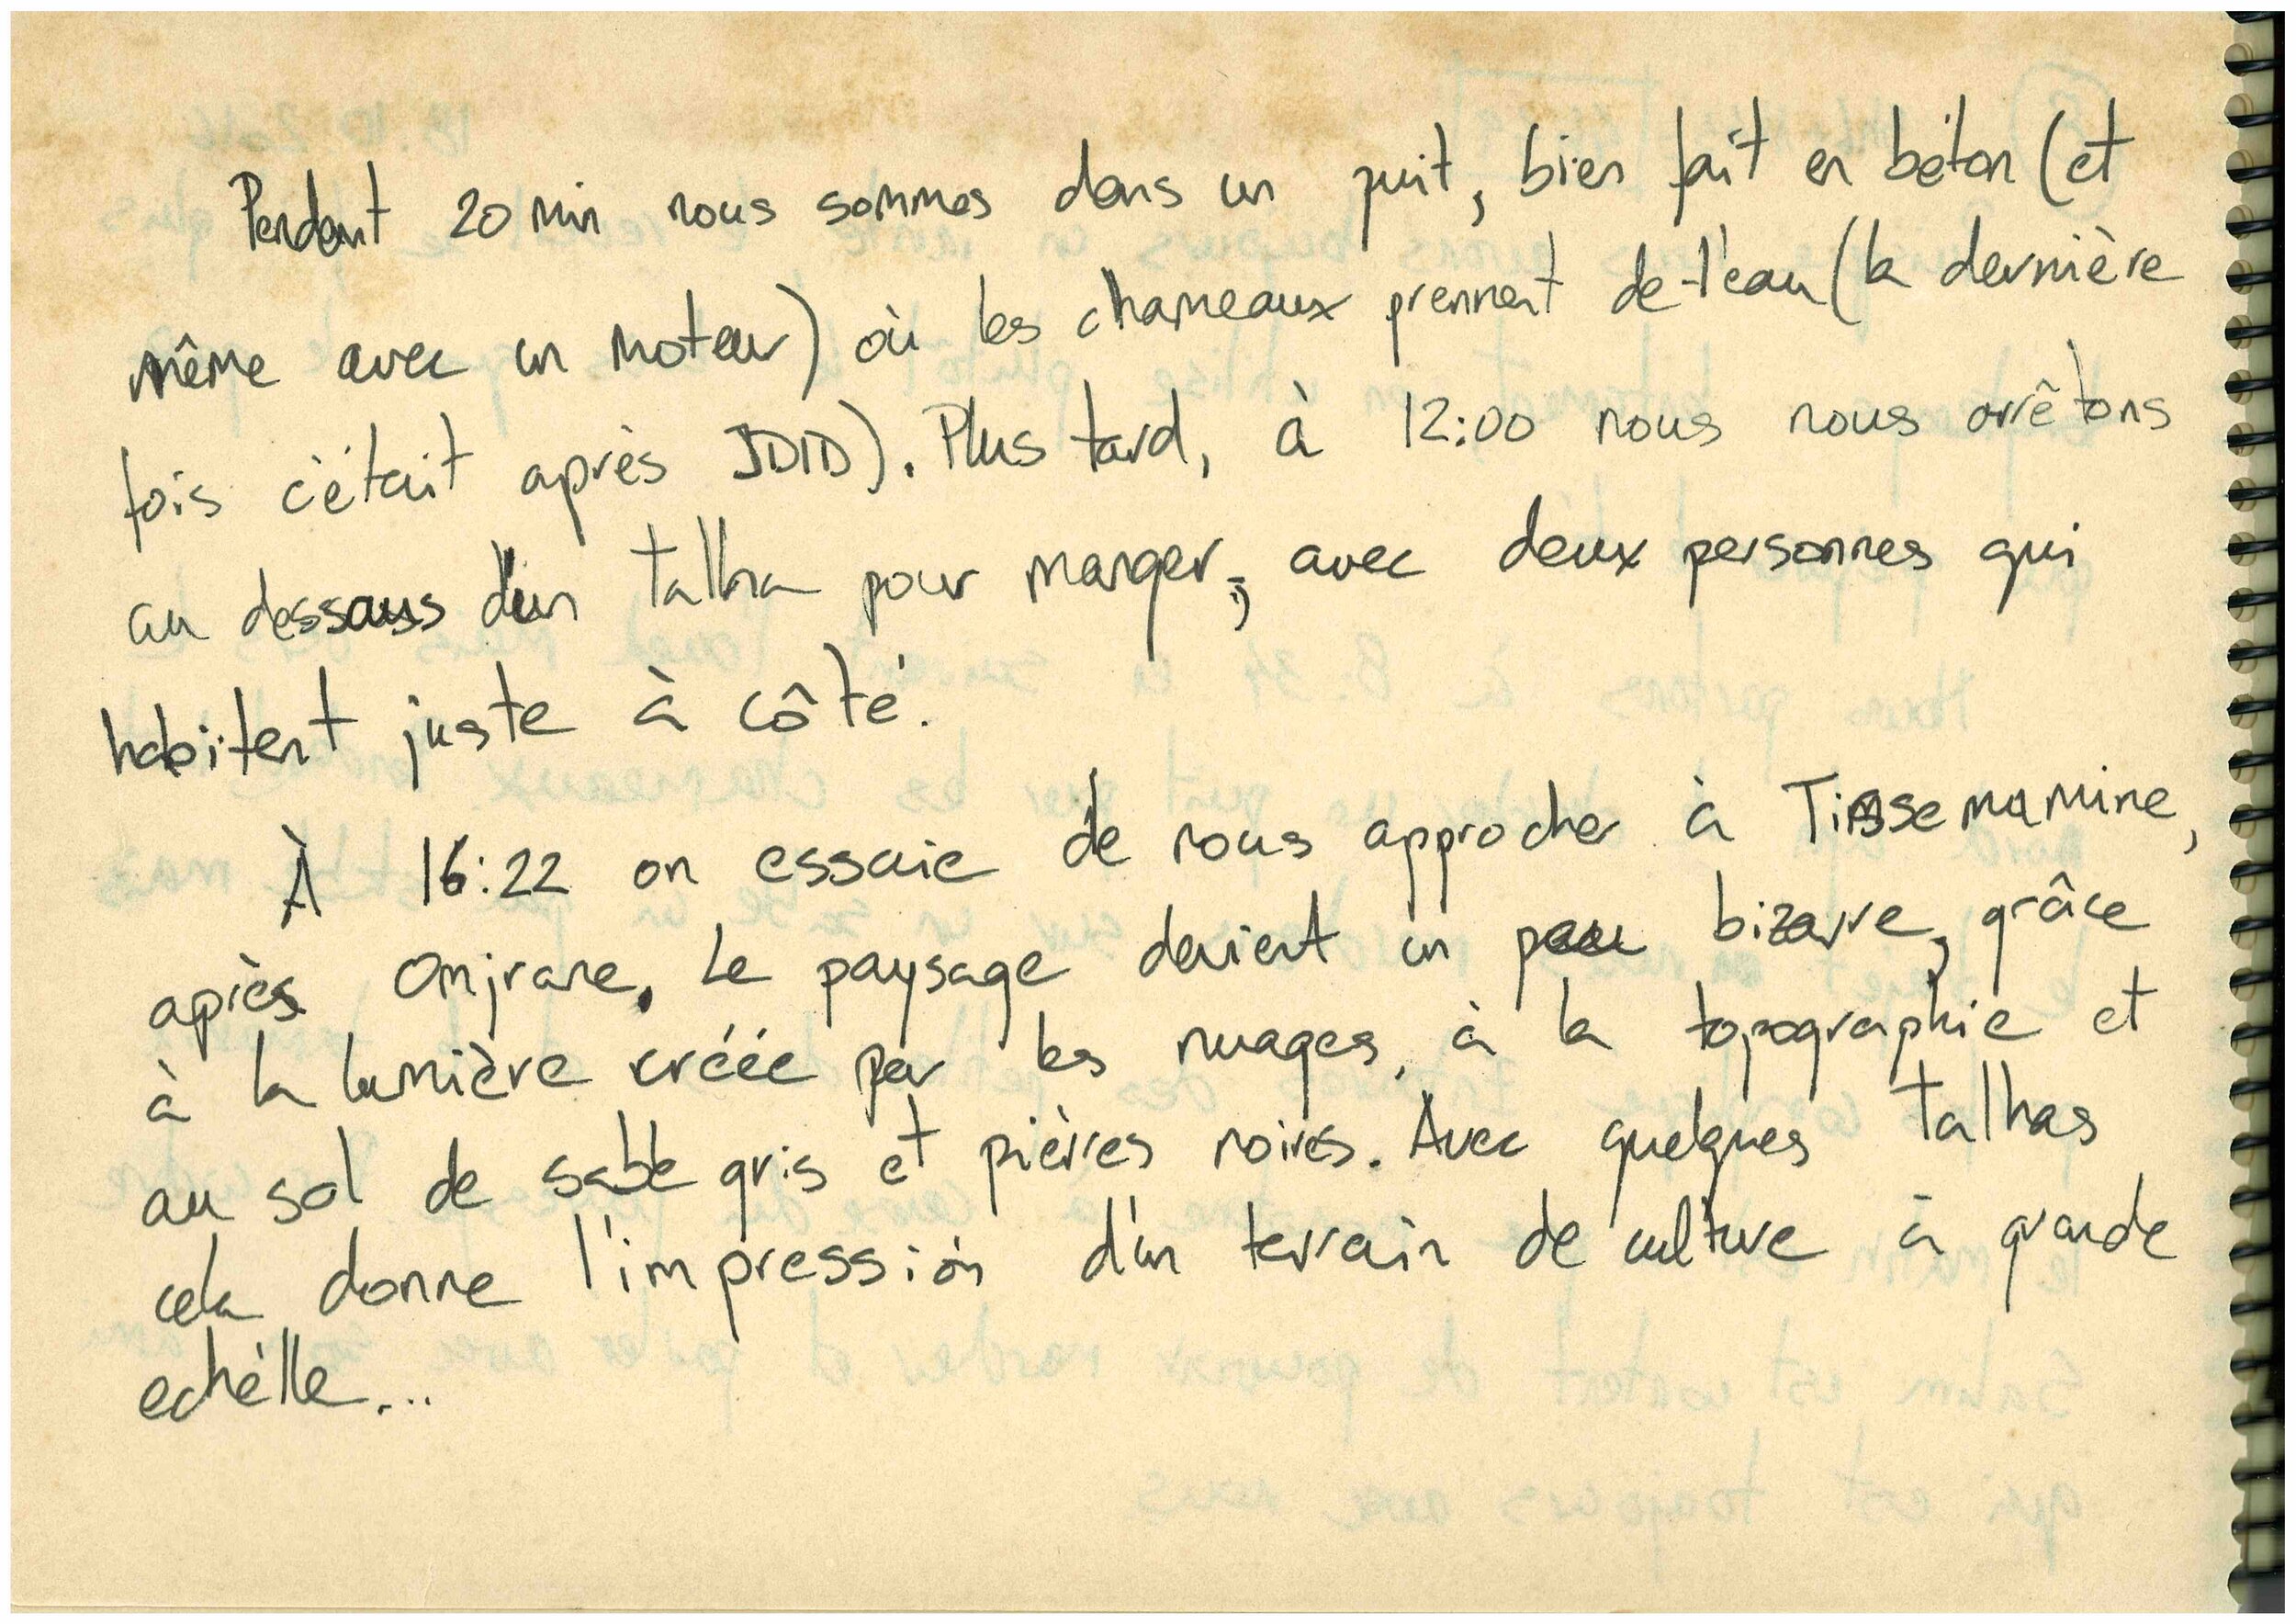 Pendant 20 min nous sommes dans un puit, bien fait en béton (et
même avec un moteur) où les chameaux prennent de l'eau (la dernière
fois c'était après JDID). Plus tard, à 12:00 nous nous arrêtons
au dessous d'un talha pour manger, avec deux personnes qui
habitent juste à côté.
À 16:22 on essaie de nous approcher à Tissemamine,
après Omjrane. Le paysage devient un peu bizarre, grâce
à la lumière créée par les nuages, à la topographie et
au sol de sable gris et pièrres noires. Avec quelques talhas
cela donne l'impression d'un terrain de culture à grande
echèlle...